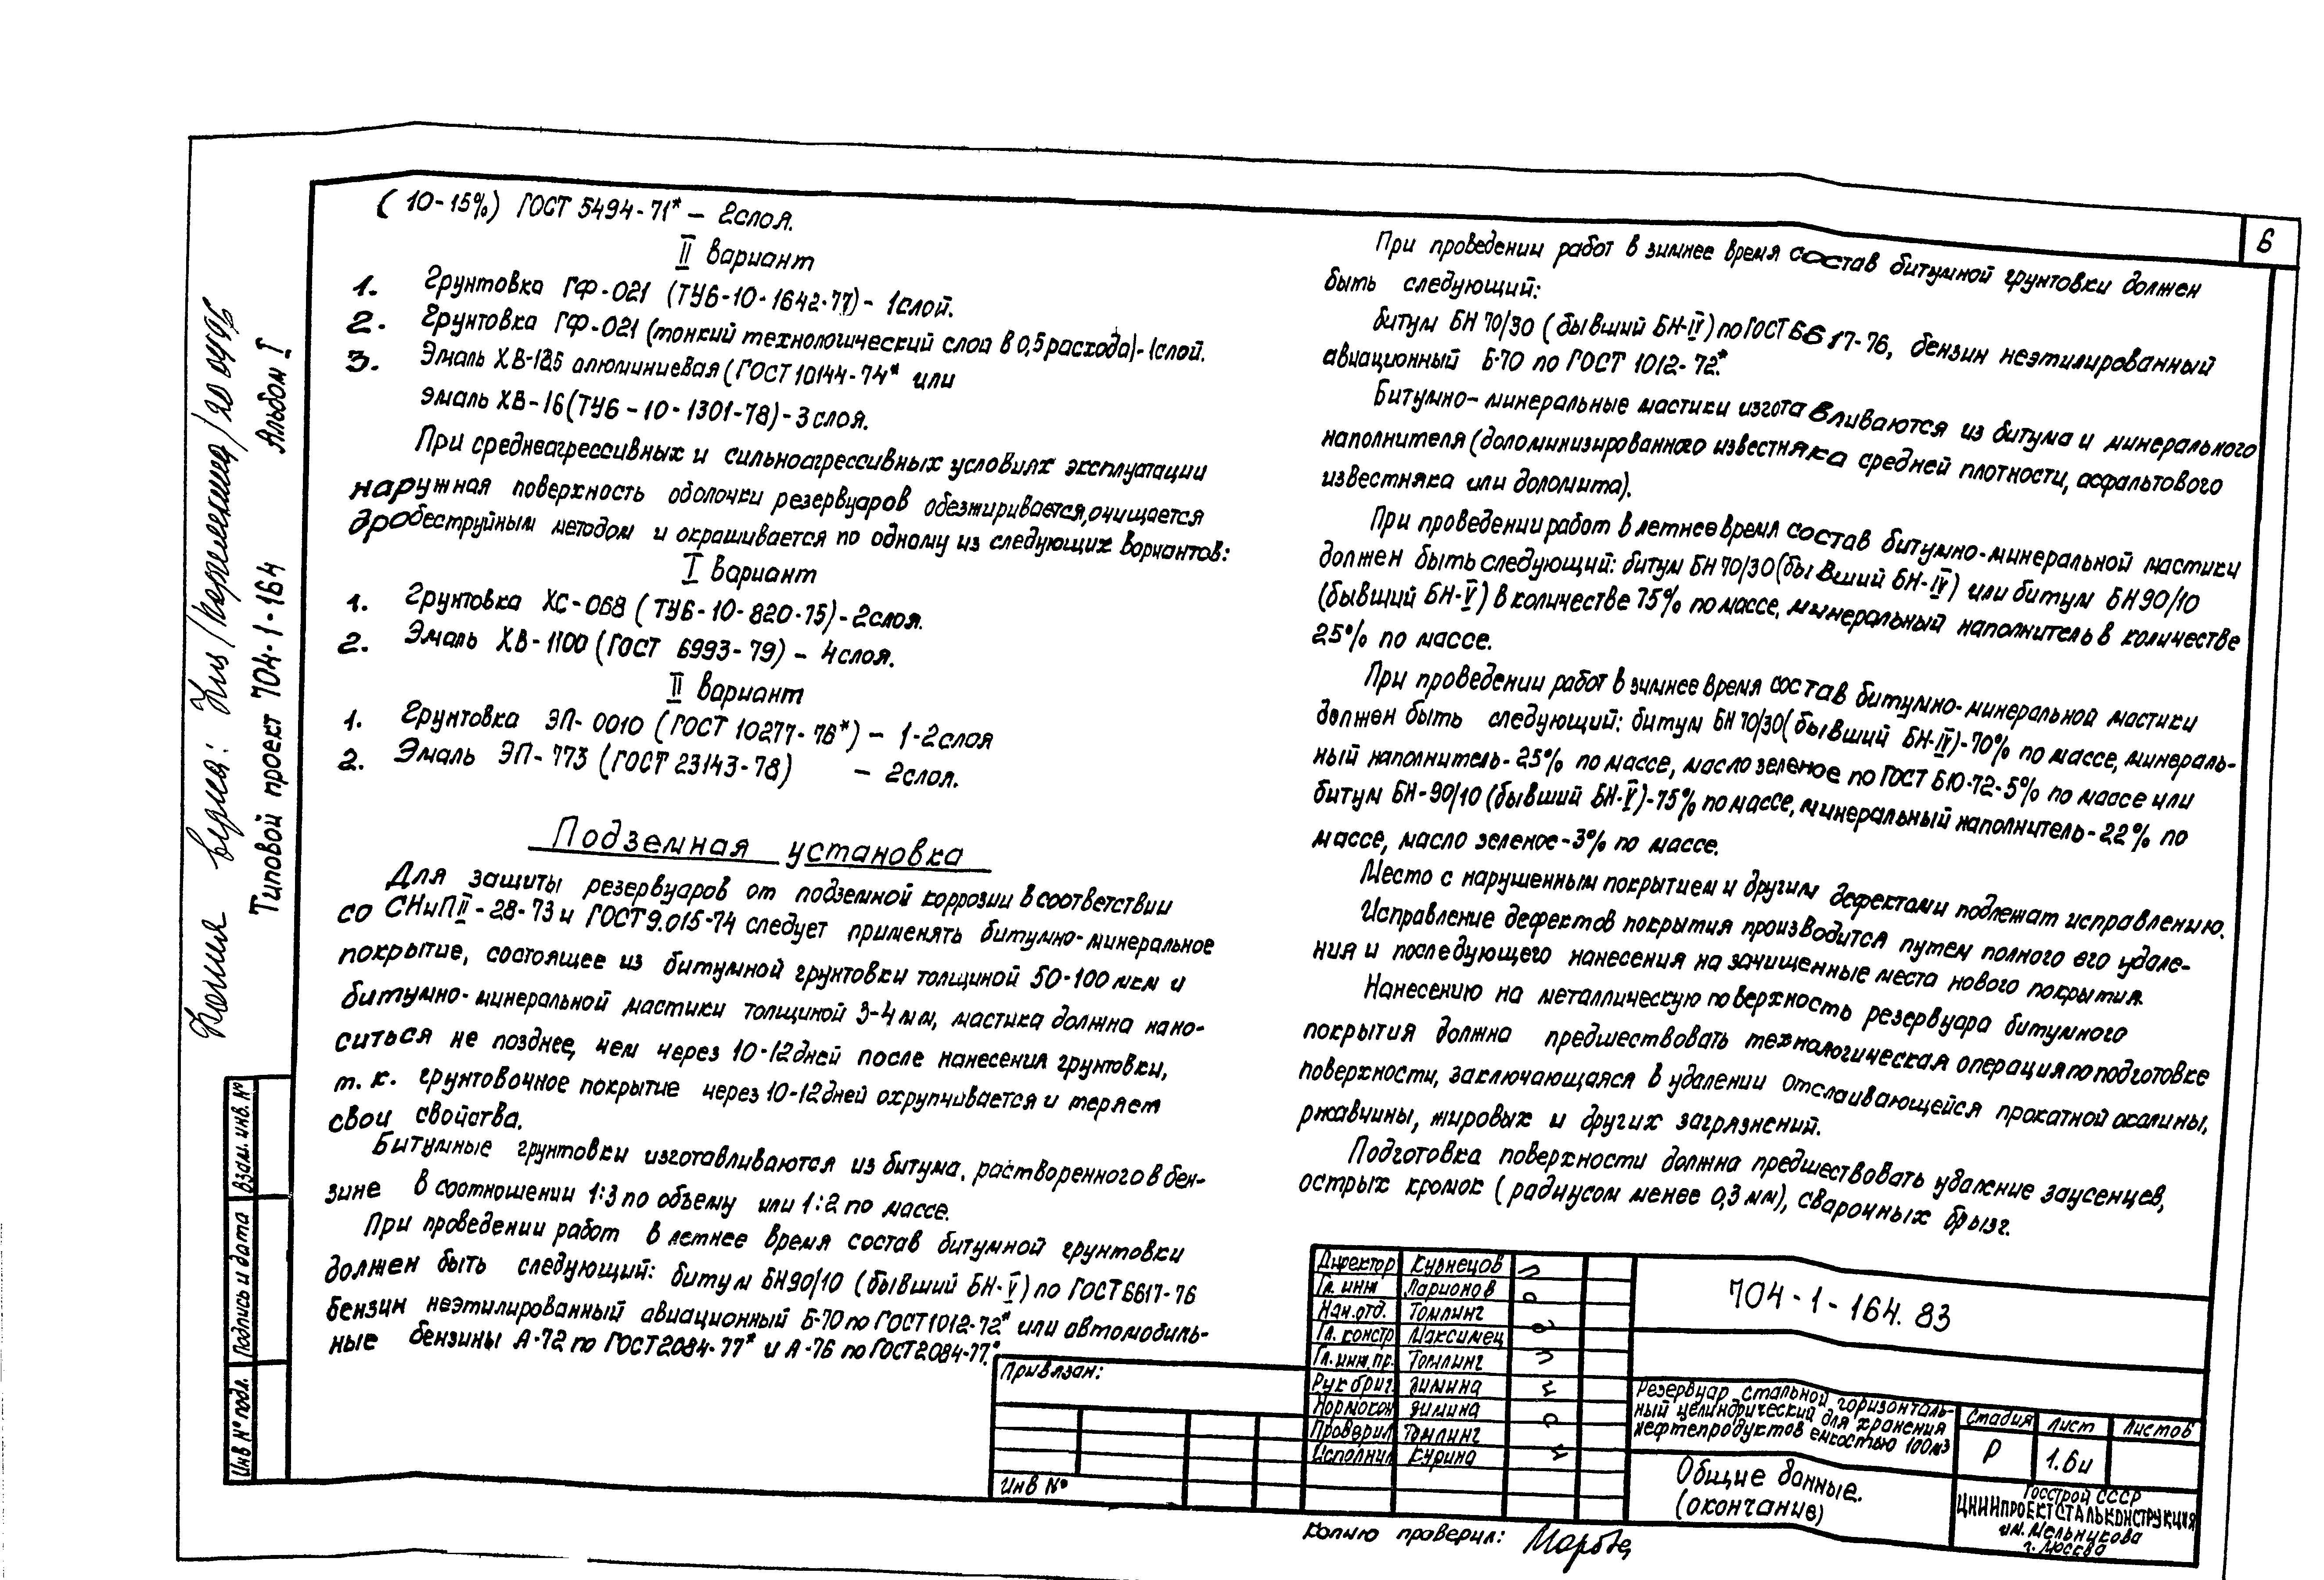 (10-15%) ГОСТ 5494-71* – 2слоя.
II вариант
1. Грунтовка ГФ-021 (ТУ6-10-1642-77) – 1слой.
2. Грунтовка ГФ-021 (тонкий технологический слой в 0,5 расхода)-1слой.
3. Эмаль ХВ-125 алюминиевая (ГОСТ 10144-74* или
эмаль ХВ-16 (ТУ6-10-1301-78) – 3 слоя.
При среднеагрессивных и сильноагрессивных условиях эксплуатации
наружная поверхность оболочки резервуаров обезжиривается, очищается
дробеструйным методом и окрашивается по одному из следующих вариантов:
I вариант
1. Грунтовка ХС-068 (ТУ6-10-820-75) – 2слоя.
2. Эмаль ХВ-1100 (ГОСТ 6993-79) – 4слоя.
II вариант
1. Грунтовка ЭП-0010 (ГОСТ 10277-76*) – 1-2слоя
2. Эмаль ЭП-773 (ГОСТ 23143-78) – 2слоя.
Подземная установка
Для защиты резервуаров от подземной коррозии в соответствии
со СНиП II-28-73 и ГОСТ 9.015-74 следует применять битумно-минеральное
покрытие, состоящее из битумной грунтовки толщиной 50-100 мкм и
битумно-минеральной мастики толщиной 3-4 мм, мастика должна нано-
ситься не позднее, чем через 10-12 дней после нанесения грунтовки,
т.к. грунтовочное покрытие через 10-12 дней охрупчивается и теряет
свои свойства.
Битумные грунтовки изготавливаются из битума, растворенного в бен-
зине в соотношении 1:3 по объему или 1:2 по массе.
При проведении работ в летнее время состав битумной грунтовки
должен быть следующий: битум БН90/10 (бывший БН-V) по ГОСТ 6617-76
бензин неэтилированный авиационный Б-70 по ГОСТ 1012-72* или автомобиль-
ные бензины А-72 по ГОСТ 2084-77* и А-76 по ГОСТ 2084-77*.
6
При проведении работ в зимнее время состав битумной грунтовки должен
быть следующий:
битум БН 70/30 (бывший БН-IV) по ГОСТ 6617-76, бензин неэтилированный
авиационный Б-70 по ГОСТ 1012-72*.
Битумно-минеральные мастики изготавливаются из битума и минерального
наполнителя (доломинизированного известняка средней плотности, асфальтового
известняка или доломита).
При проведении работ в летнее время состав битумно-минеральной мастики
должен быть следующий: битум БН 70/30 (бывший БН-IV) или битум БН 90/10
(бывший БН-V) в количестве 75% по массе, минеральный наполнитель в количестве
25% по массе.
При проведении работ в зимнее время состав битумно-минеральной мастики
должен быть следующий: битум БН 70/30 (бывший БН-IV)-70% по массе, минераль-
ный наполнитель-25% по массе, масло зеленое по ГОСТ 610-72-5% по массе или
битум БН-90/10 (бывший БН-V)-75% по массе, минеральный наполнитель-22% по
массе, масло зеленое-3% по массе.
Место с нарушенным покрытием и другим дефектами подлежат исправлению.
Исправление дефектов покрытия производится путем полного его удале-
ния и последующего нанесения на зачищенные места нового покрытия.
Нанесению на металлическую поверхность резервуара битумного
покрытия должна предшествовать технологическая операция по подготовке
поверхности, заключающаяся в удалении отслаивающейся прокатной окалины,
ржавчины, жировых и других загрязнений.
Подготовка поверхности должна предшествовать удаление заусенцев,
острых кромок (радиусом менее 0,3 мм), сварочных брызг.
Копия верна:
Типовой проект 704-1-164 Альбом I
Взам. инв. №
Подпись и дата
Инв № подл.
Привязан:
Инв №
Директор Кузнецов
Гл. инж Ларионов
Нач.отд. Томлинг
Гл. констр Максимец
Гл.инж.пр. Томлинг
Рук бриг. Зимина
Нормокон Зимина
Проверил Томлинг
Исполнил Курина
704-1-164.83
Резервуар стальной горизонталь-
ный цилиндрический для хранения
нефтепродуктов емкостью 100м³
Стадия Лист Листов
Р 1.6и
Общие данные.
(окончание)
Госстрой СССР
ЦНИИПРОЕКТСТАЛЬКОНСТРУКЦИЯ
им. Мельникова
г. Москва
Копию проверил: